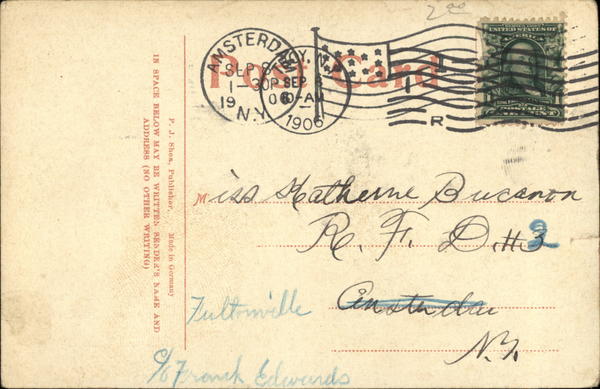 Post Card
AMSTERDAM
SEP
1-30P
19
N.Y.
SEP
1906
R
2 00
UNITED STATES OF
POSTAGE
IN SPACE BELOW MAY BE WRITTEN SENDER'S NAME AND
ADDRESS (NO OTHER WRITING)
P. J. Shea, Publisher. Made in Germany
Miss Katherne Bucanon
R. F. D. #3 2
Fultonville Amsterdam
N.Y.
c/o Frank Edwards